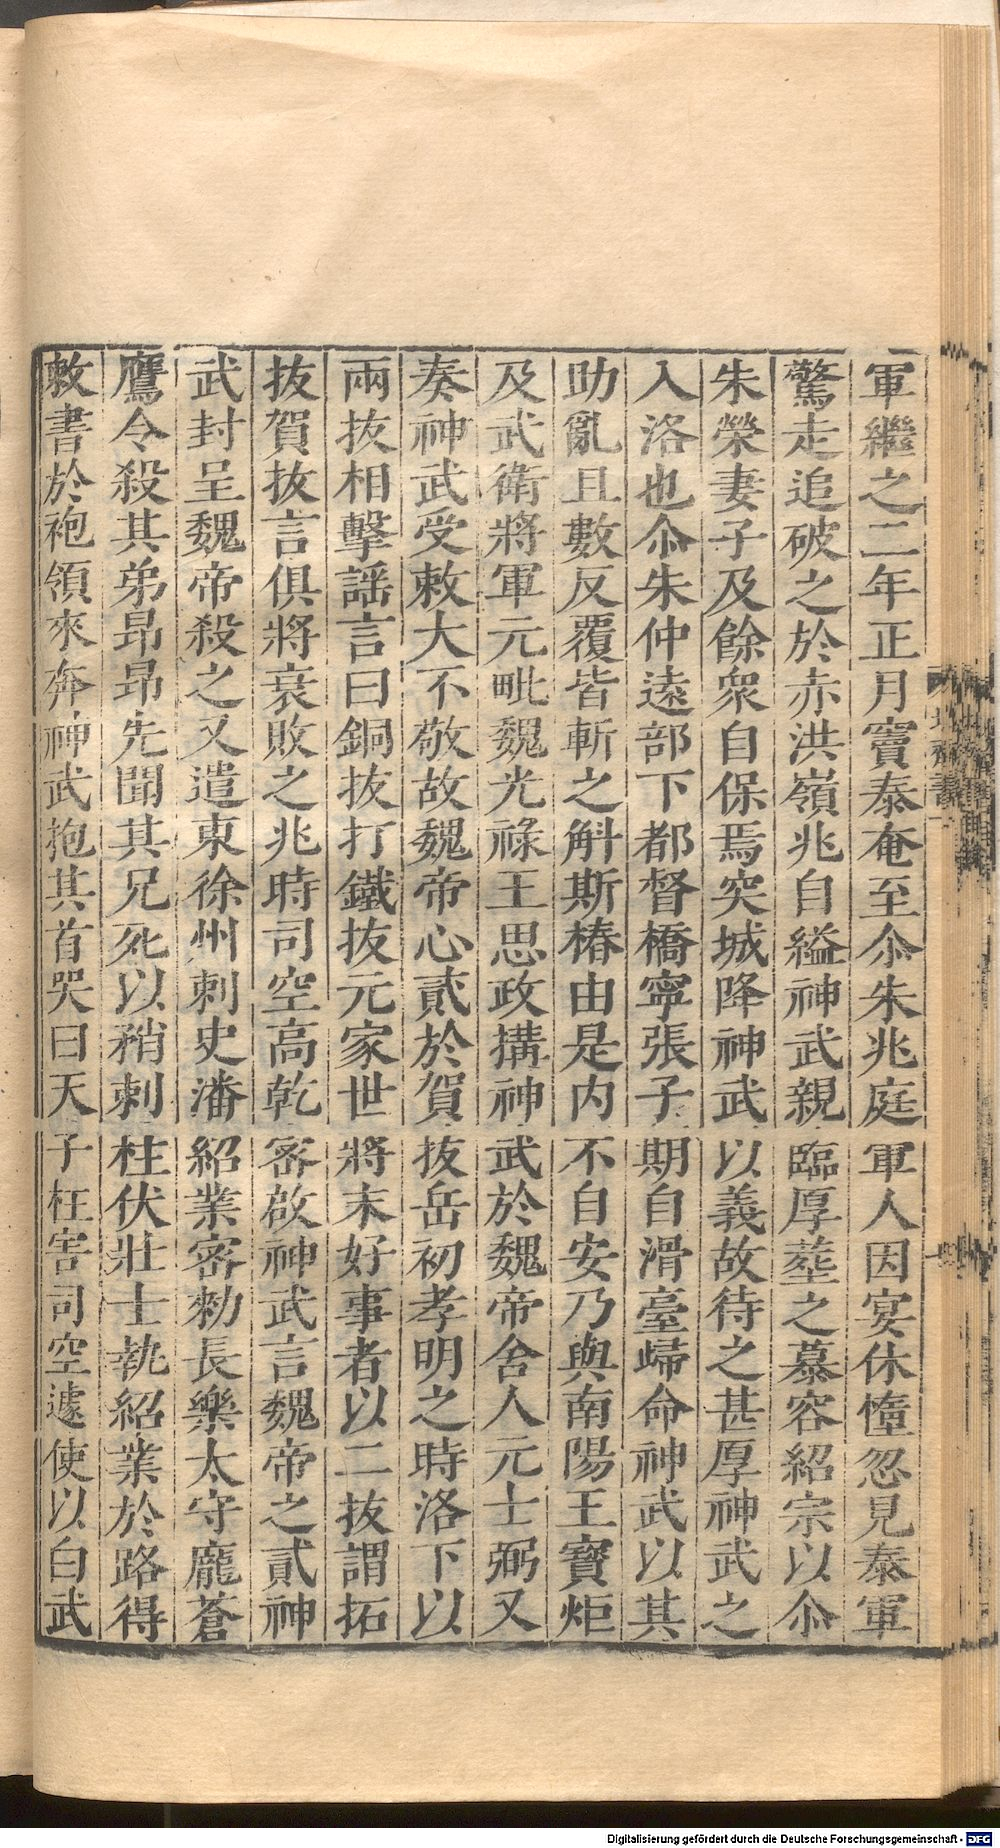 軍繼之二年正月竇泰奄至尒朱兆庭軍人因宴休惰忽見泰軍
驚走追破之於赤洪嶺兆自縊神武親臨厚塟之慕容紹宗以尒
朱榮妻子及餘衆自保焉突城降神武以義故待之甚厚神武之
入洛也尒朱仲遠部下都督橋寧張子期自滑臺歸命神武以其
助亂且數反覆皆斬之斛斯椿由是内不自安乃與南陽王寳炬
及武衛將軍元毗魏光祿王思政搆神武於魏帝舍人元士弼又
奏神武受敕大不敬故魏帝心貳於賀拔岳初孝明之時洛下以
兩拔相擊謡言曰銅拔打鐵拔元家世將末好事者以二拔謂拓
拔賀拔言俱將衰敗之兆時司空高乾密啟神武言魏帝之貳神
武封呈魏帝殺之又遣東徐州刺史潘紹業密勑長樂太守龐蒼
鷹令殺其弟昂昂先聞其兄死以矟刺柱伏壯士執紹業於路得
敕書於袍領來奔神武抱其首哭曰天子枉害司空遽使以白武
Digitalisierung gefördert durch die Deutsche Forschungsgemeinschaft - DFG